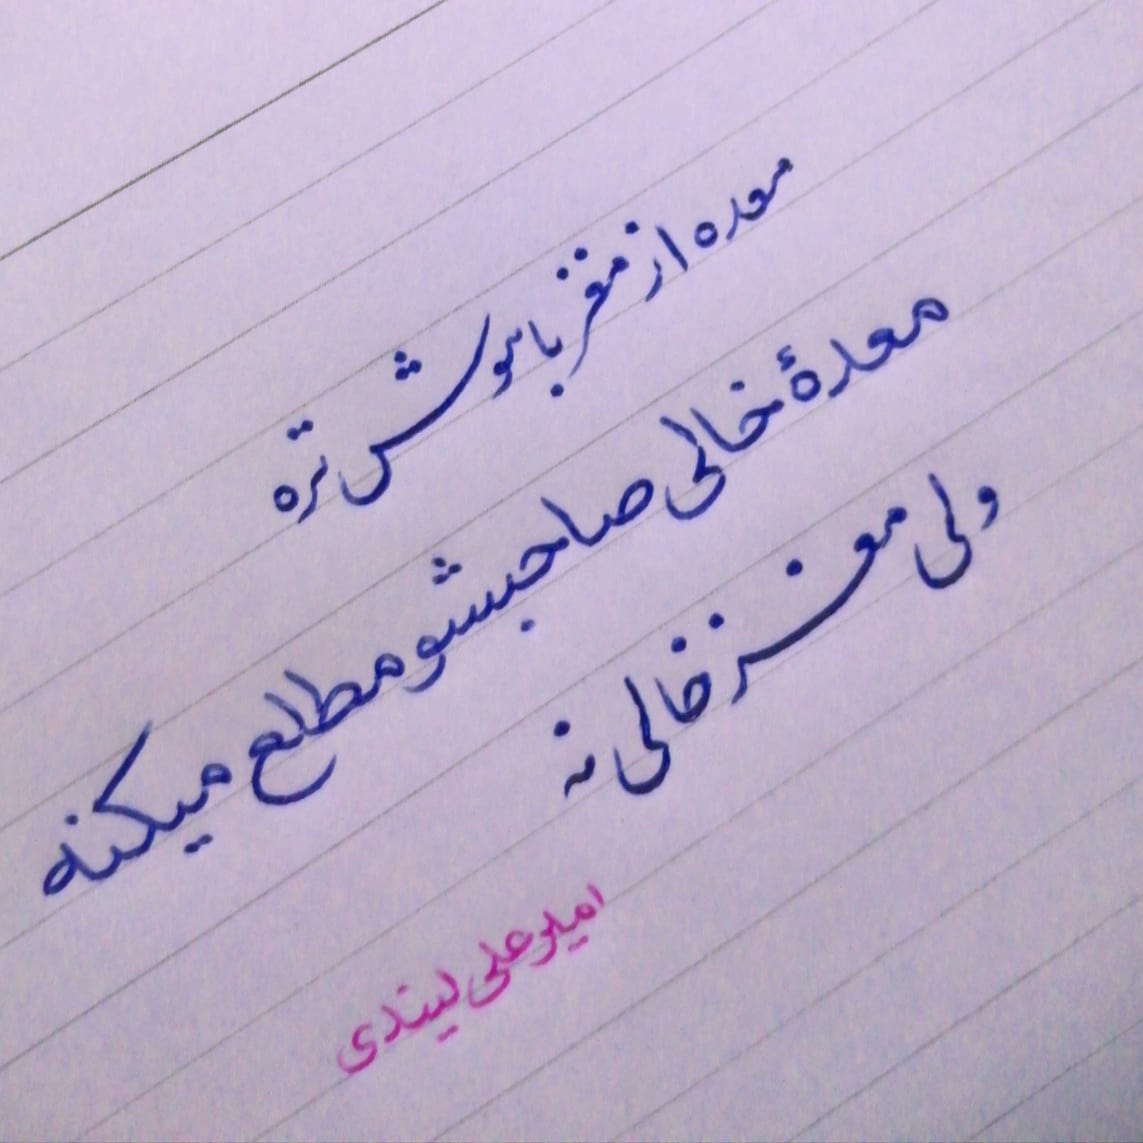 معده از مغز باهوش تره
معدهٔ خالی صاحبشو مطلع میکنه
ولی مغز خالی نه
امیر علی